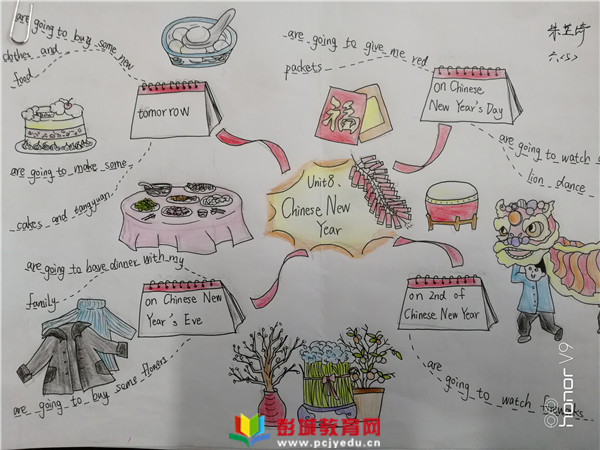 are going to buy some new
clothes and
food
tomorrow
are going to make some
cakes and tangyuan
are going to give me red
packets
on Chinese
New Year's Day
六(5)
are going to watch a
lion dance
福
Unit8、
Chinese New
Year
are going to have dinner with my
family
on Chinese New
Year's Eve
are going to buy some flowers
on 2nd of
Chinese New Year
are going to watch fireworks
honor V9
彭城教育网
www.pcjyedu.cn